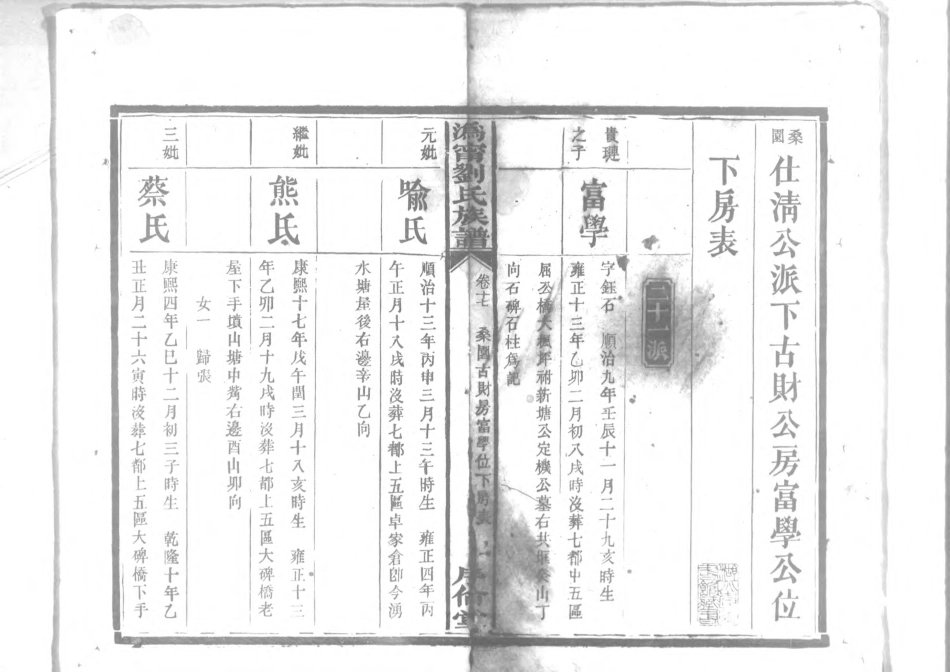 桑園
仕清公派下古財公房富學公位
下房表
二十一派
貴璭
之子
富學
字鈺石 順治九年壬辰十一月二十九亥時生
雍正十三年乙卯二月初八戌時沒葬七都中五區
屈公橋大
祔新塘公定機公墓右共
山丁
向石碑石柱爲記
溈甯劉氏族譜
桑園古財房富學位下房表
元妣
喻氏
順治十三年丙申三月十三午時生 雍正四年丙
午正月十八戌時沒葬七都上五區卓家倉卽今湧
水塘屋後右邊辛山乙向
繼妣
熊氏
康熙十七年戊午閏三月十八亥時生 雍正十三
年乙卯二月十九戌時沒葬七都上五區大碑橋老
屋下手墳山塘中嘴右邊酉山卯向
女一 歸張
三妣
蔡氏
康熙四年乙巳十二月初三子時生 乾隆十年乙
丑正月二十六寅時沒葬七都上五區大碑橋下手